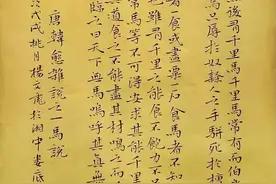 後有千里馬千里馬常有而伯
馬只辱於奴隸人之手駢死於槽
者食或盡粟一石食馬者不知
也雖有千里之能食不飽力不
常馬等不可得安求其能千里
其道食之不能盡其材鳴之而
臨之曰天下無馬嗚呼其真無
唐韓愈雜說之一馬說
於戊戌桃月楊文於湘中婁底